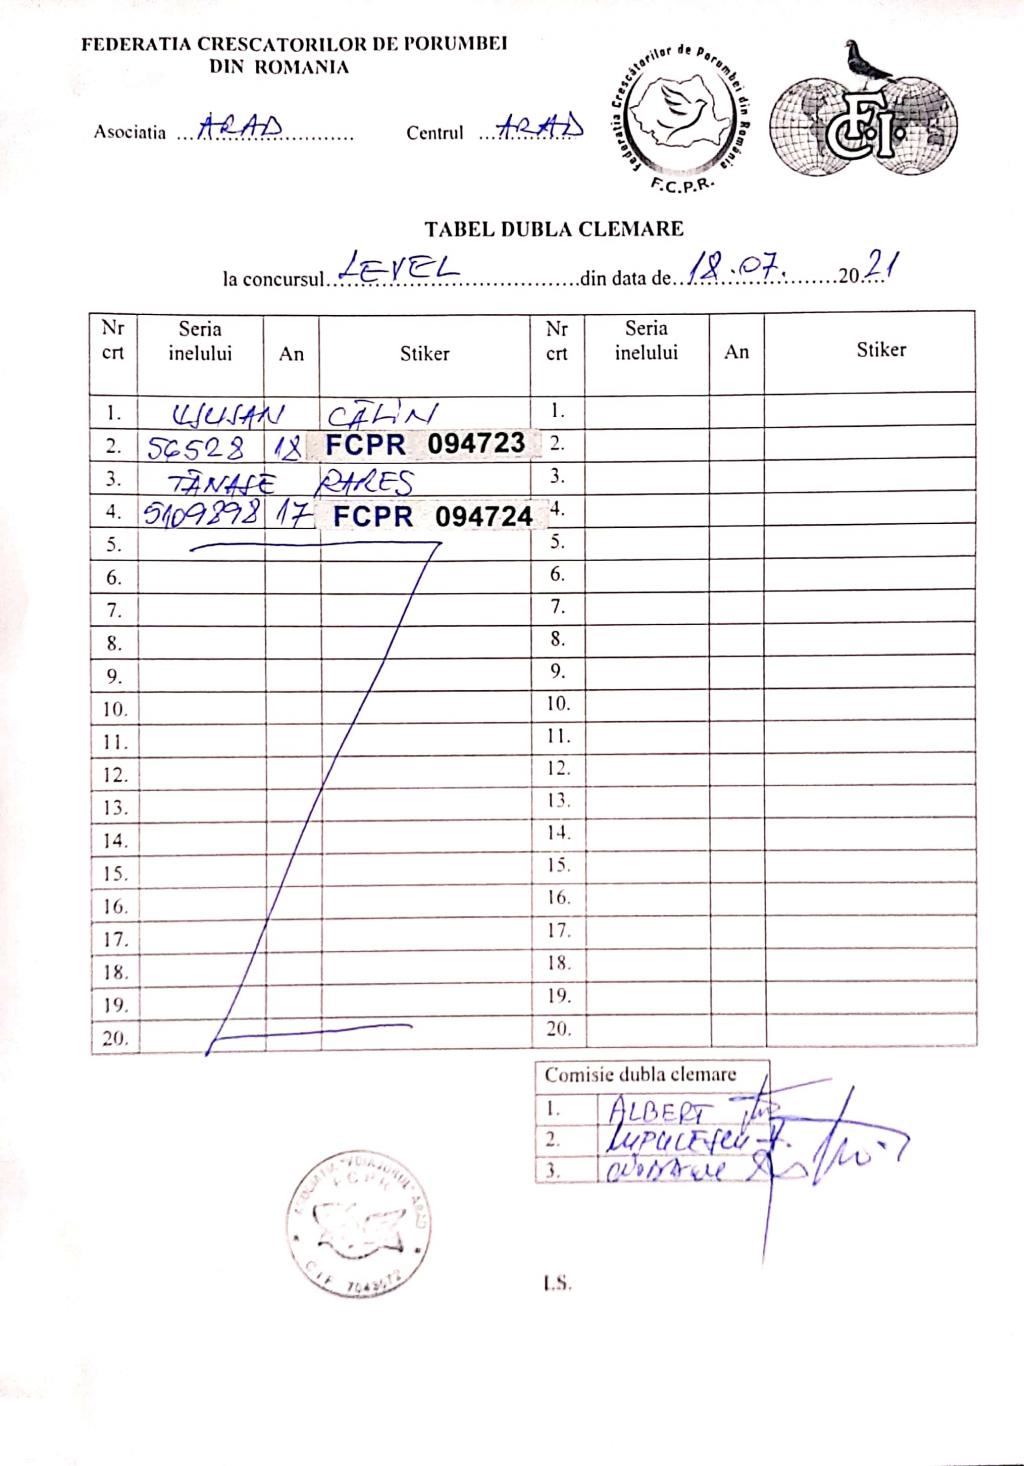 FEDERATIA CRESCATORILOR DE PORUMBEI
DIN ROMANIA
Asociatia ...ARAD............ Centrul ...ARAD
Federatia Crescătorilor de Porumbei din România
F.C.P.R.
F.C.I.
TABEL DUBLA CLEMARE
la concursul LEVEL din data de 18.07. 2021
Nr crt Seria inelului An Stiker Nr crt Seria inelului An Stiker
1. UȘUSAN CĂLIN 1.
2. 56528 18 FCPR 094723 2.
3. TĂNASE RAREȘ 3.
4. 5109898 17 FCPR 094724 4.
5. 5.
6. 6.
7. 7.
8. 8.
9. 9.
10. 10.
11. 11.
12. 12.
13. 13.
14. 14.
15. 15.
16. 16.
17. 17.
18. 18.
19. 19.
20. 20.
Comisie dubla clemare
1. ALBERT
2. LUPULESCU
3.
ASOCIATIA "VOIAJORUL" ARAD
FCPR
C.I.F.
L.S.